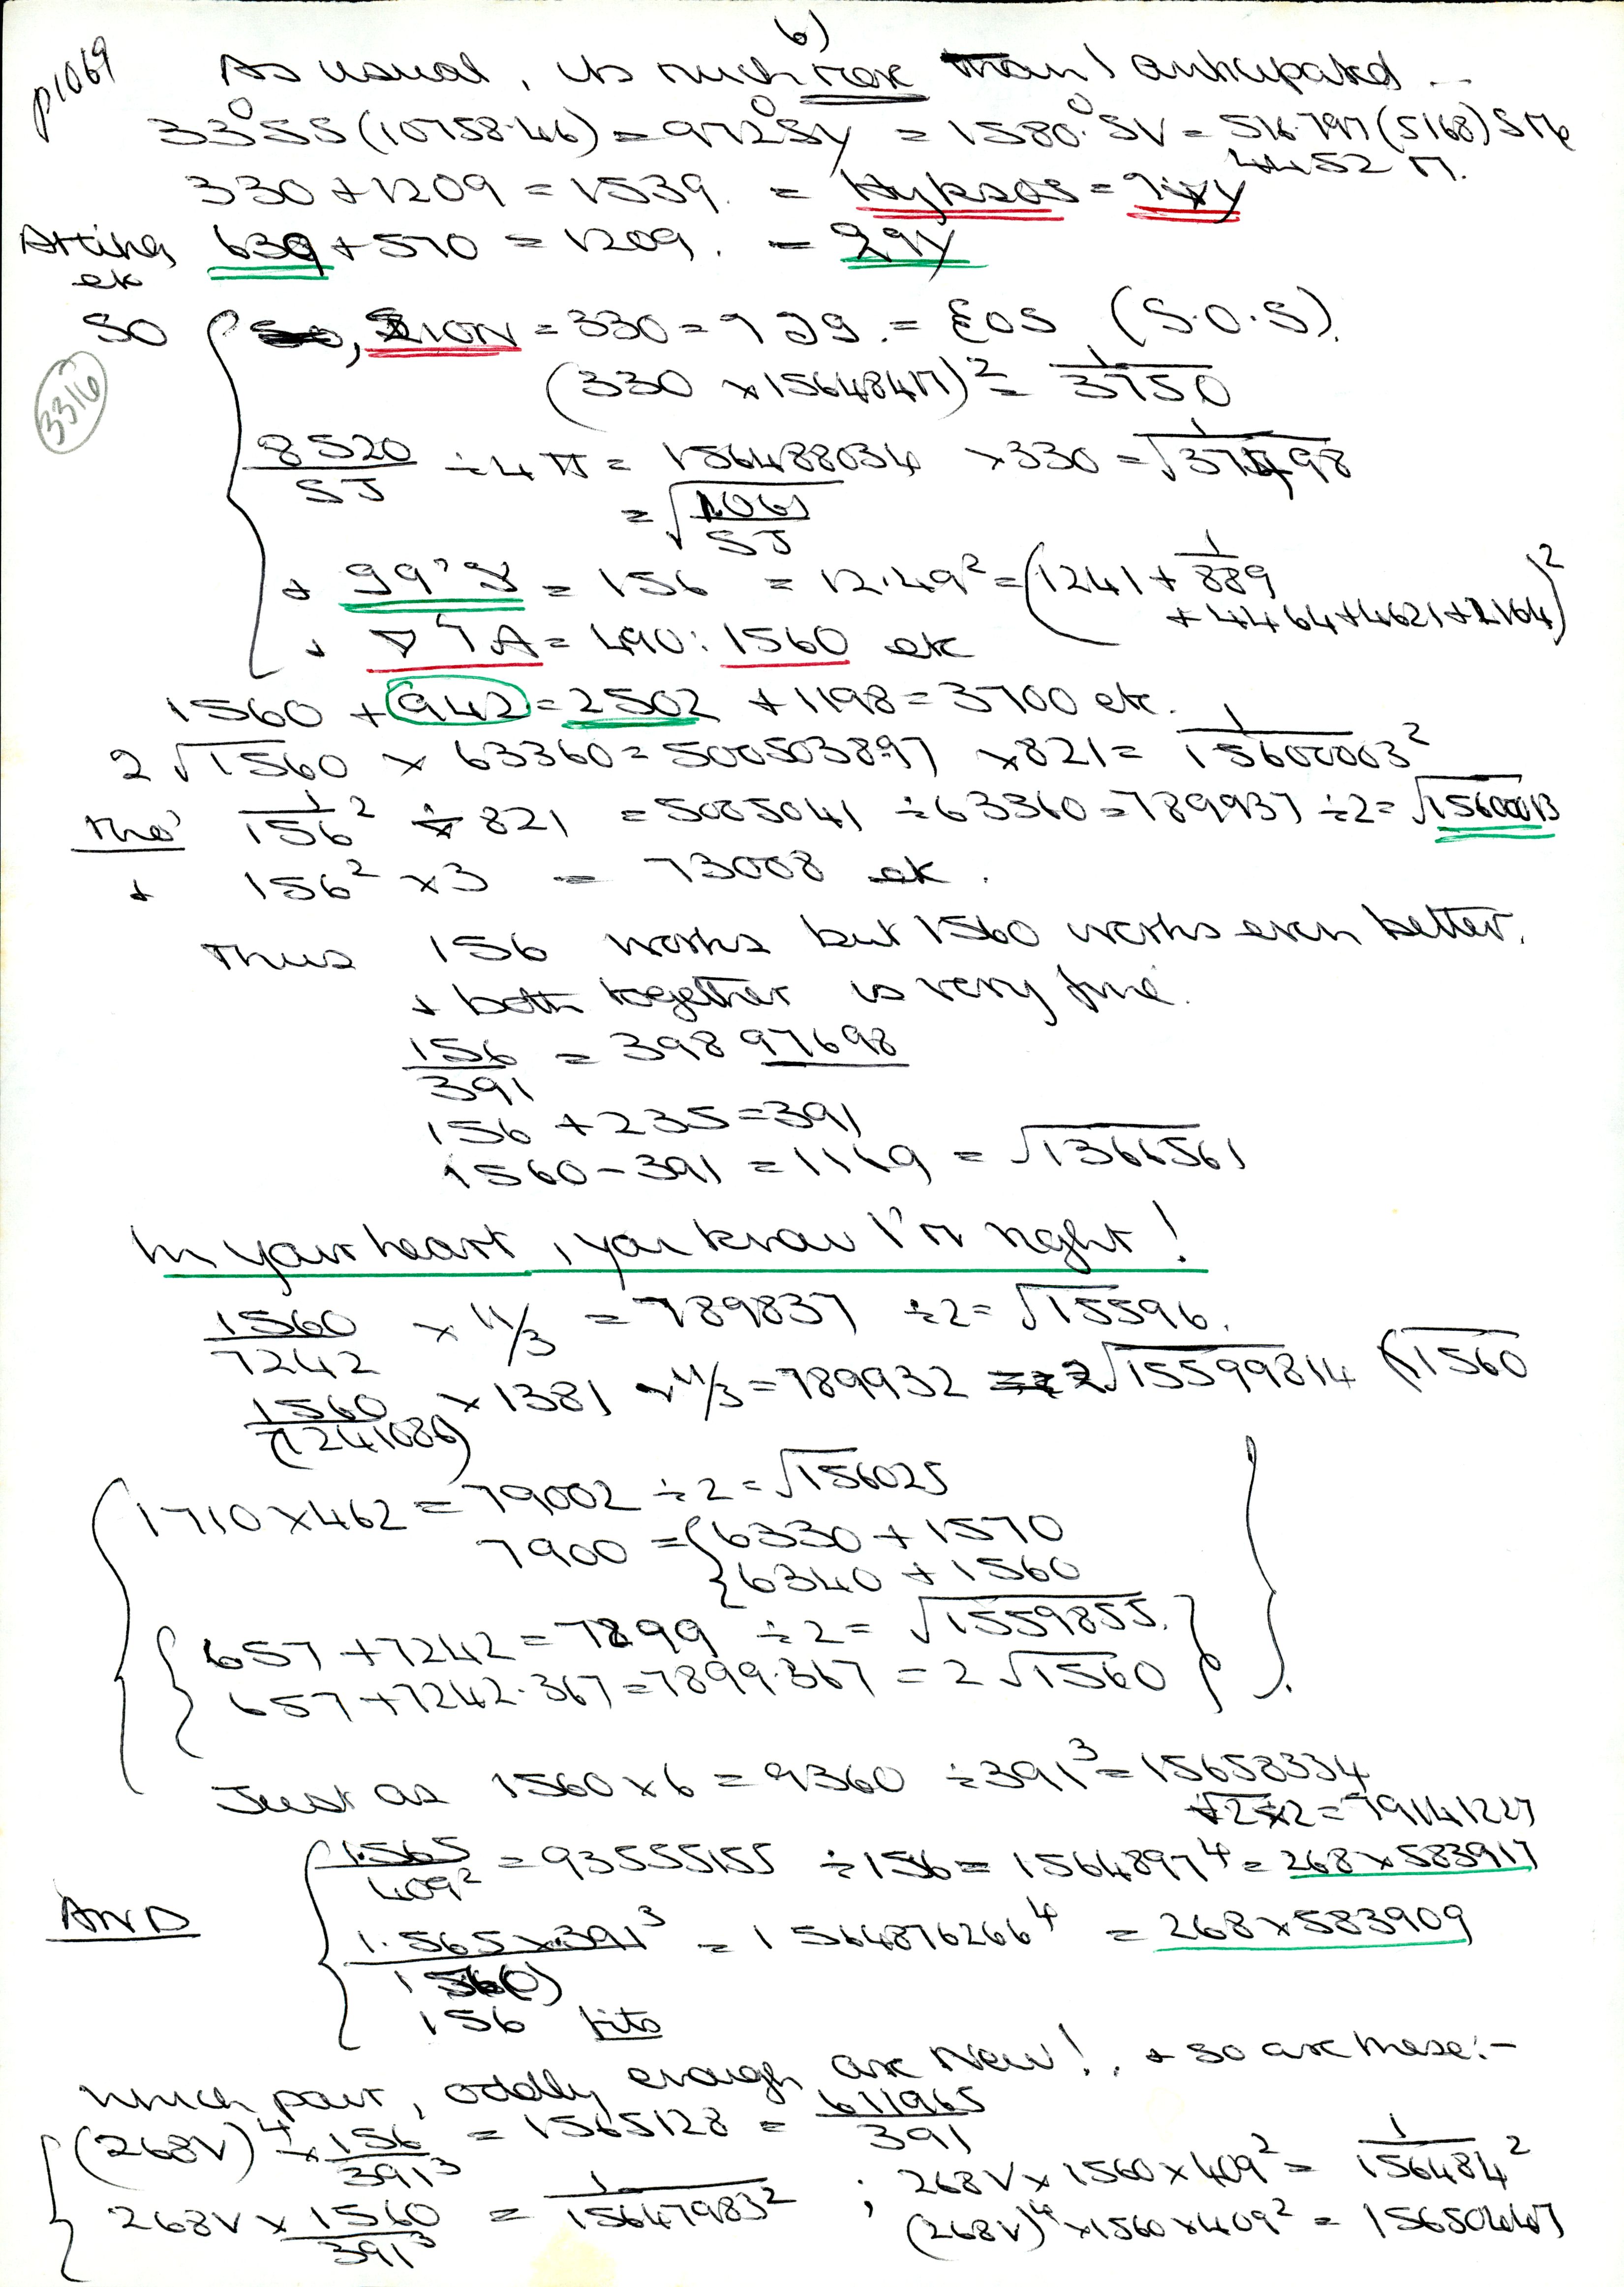 6)
p1069
As usual, its much more than I anticipated ...
33°SS (10758.46) = 972°SY = 1580.°SV = 516.797 (5168) SMe
4452 M.
330 + 1209 = 1539. = Hyksos =
Attinq 639 + 570 = 1209. =
ek
So ZION = 330 = = EOS (S.O.S).
3316
(330 × 156484π)² = 1/3750
8520/SJ ÷ 4π = 156488034 × 330 = √1/
= √1061/SJ
+ = 156 = 12.49² = (1241 + 1/889
+ 4464 + 4621 + 2164)²
+ = 490 : 1560 ek
1560 + 942 = 2502 + 1198 = 3700 etc.
2√1560 × 63360 = 500503897 × 821 = 1/15600003²
Tho' 1/156² ÷ 821 = 5005041 ÷ 63360 = 789937 ÷ 2 = √1560013
+ 156² × 3 = 73008 ek.
Thus 156 works but 1560 works even better.
+ both together is very fine.
156/391 = 39897698
156 + 235 = 391
1560 - 391 = 1169 = √1366561
In your heart, you know I'm right!
1560/7242 × 11/3 = 789837 ÷ 2 = √15596.
1560/(7241086) × 1381 × 11/3 = 789932 = 2√15599814 (√1560
1710 × 462 = 79002 ÷ 2 = √156025
7900 = {6330 + 1570
{6340 + 1560
657 + 7242 = 7899 ÷ 2 = √1559855.
657 + 7242.367 = 7899.367 = 2√1560
Just as 1560 × 6 = 9360 ÷ 391³ = 15658334
÷ 2 = 79141227
1.565/409² = 93555155 ÷ 156 = 1564897⁴ = 268 × 583917
AND 1.565 × 391³/1560) = 1564876266⁴ = 268 × 583909
156 fits
which pair, oddly enough are New! + so are these:-
(268V)⁴ × 156/391³ = 1565128 = 611965/391
268V × 1560/391³ = 1/15647983² ; 268V × 1560 × 409² = 1/156484²
(268V)⁴ × 1560 × 409² = 156504467